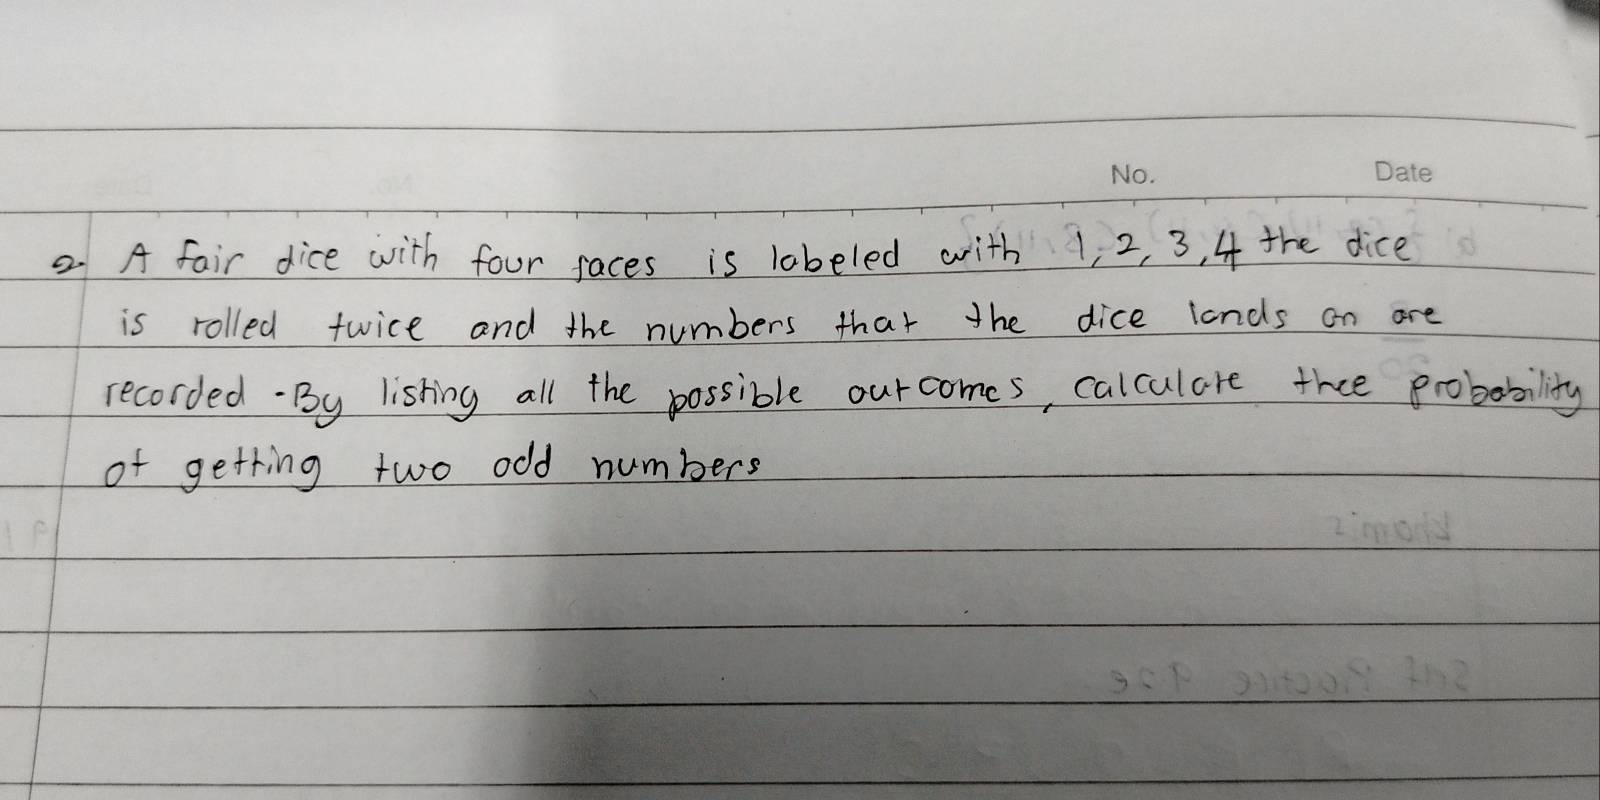 No. Date
2. A fair dice with four faces is labeled with 1, 2, 3, 4 the dice
is rolled twice and the numbers that the dice lands on are
recorded. By listing all the possible outcomes, calculate thee probability
of getting two odd numbers